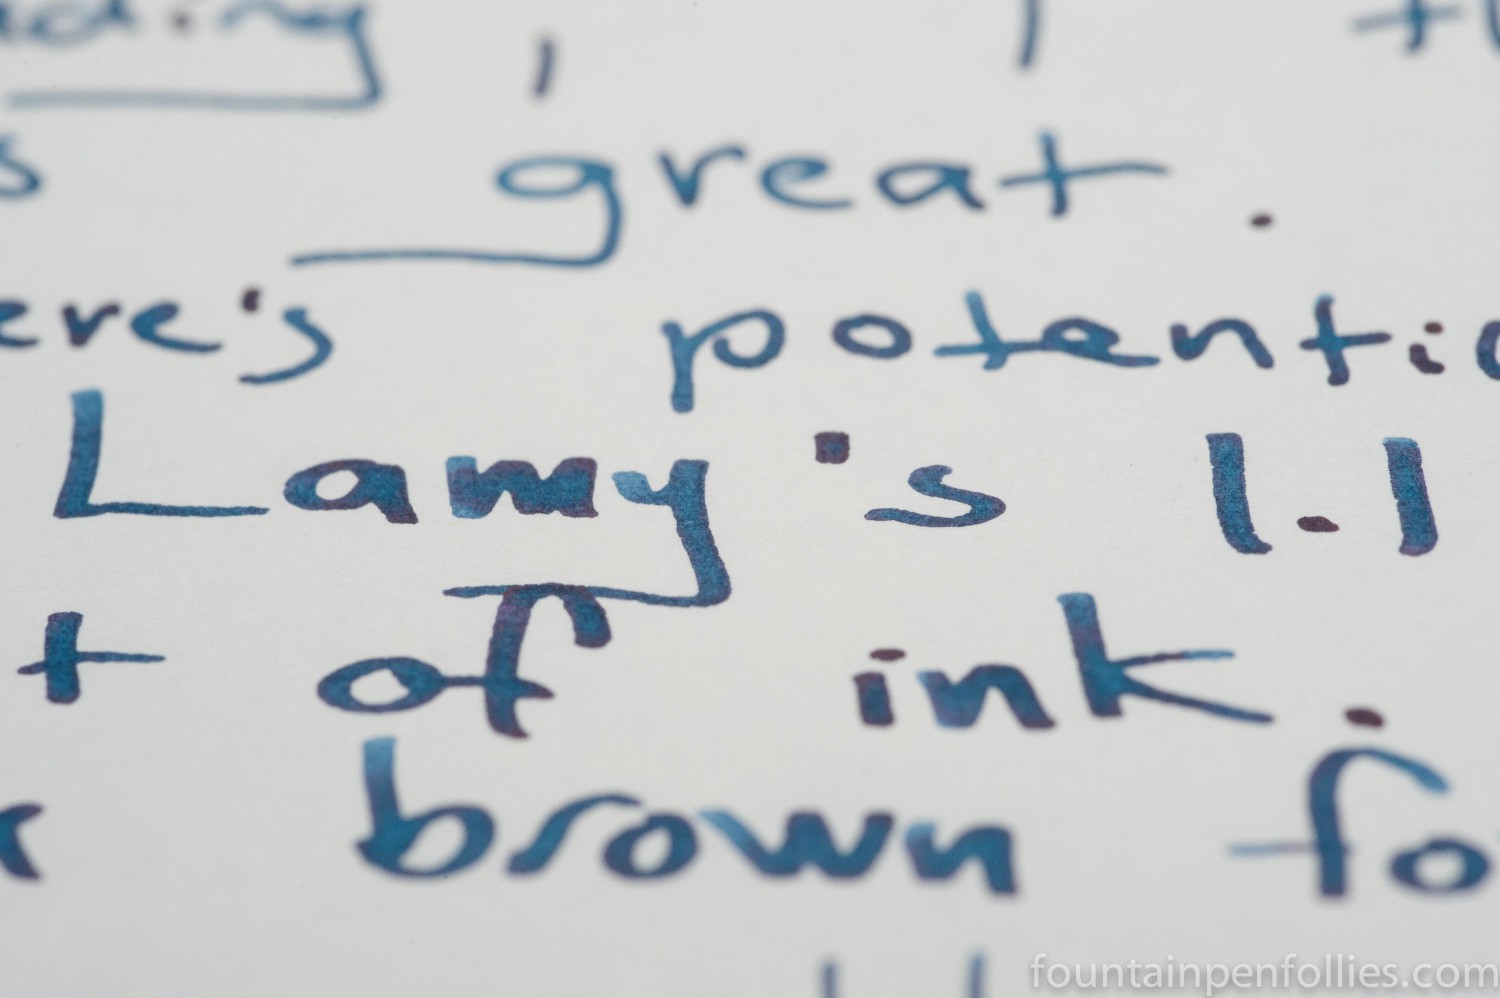 great.
ere's potentic
Lamy's 1.1
t of ink.
brown fo
fountainpenfollies.com